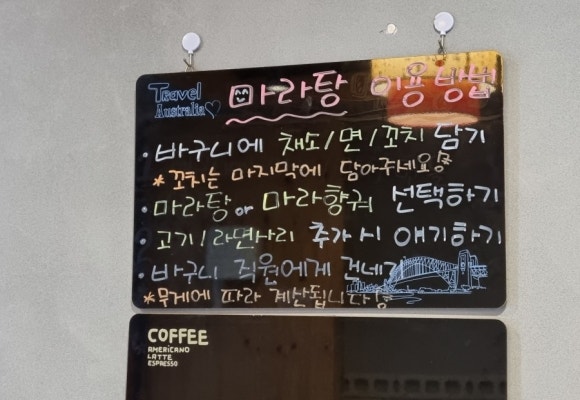 Travel
Australia
마라탕 이용방법
· 바구니에 채소/면/꼬치 담기
* 꼬치는 마지막에 담아주세요
· 마라탕 or 마라향궈 선택하기
· 고기/라면사리 추가 시 얘기하기
· 바구니 직원에게 건네기
* 무게에 따라 계산됩니다
COFFEE
AMERICANO
LATTE
ESPRESSO